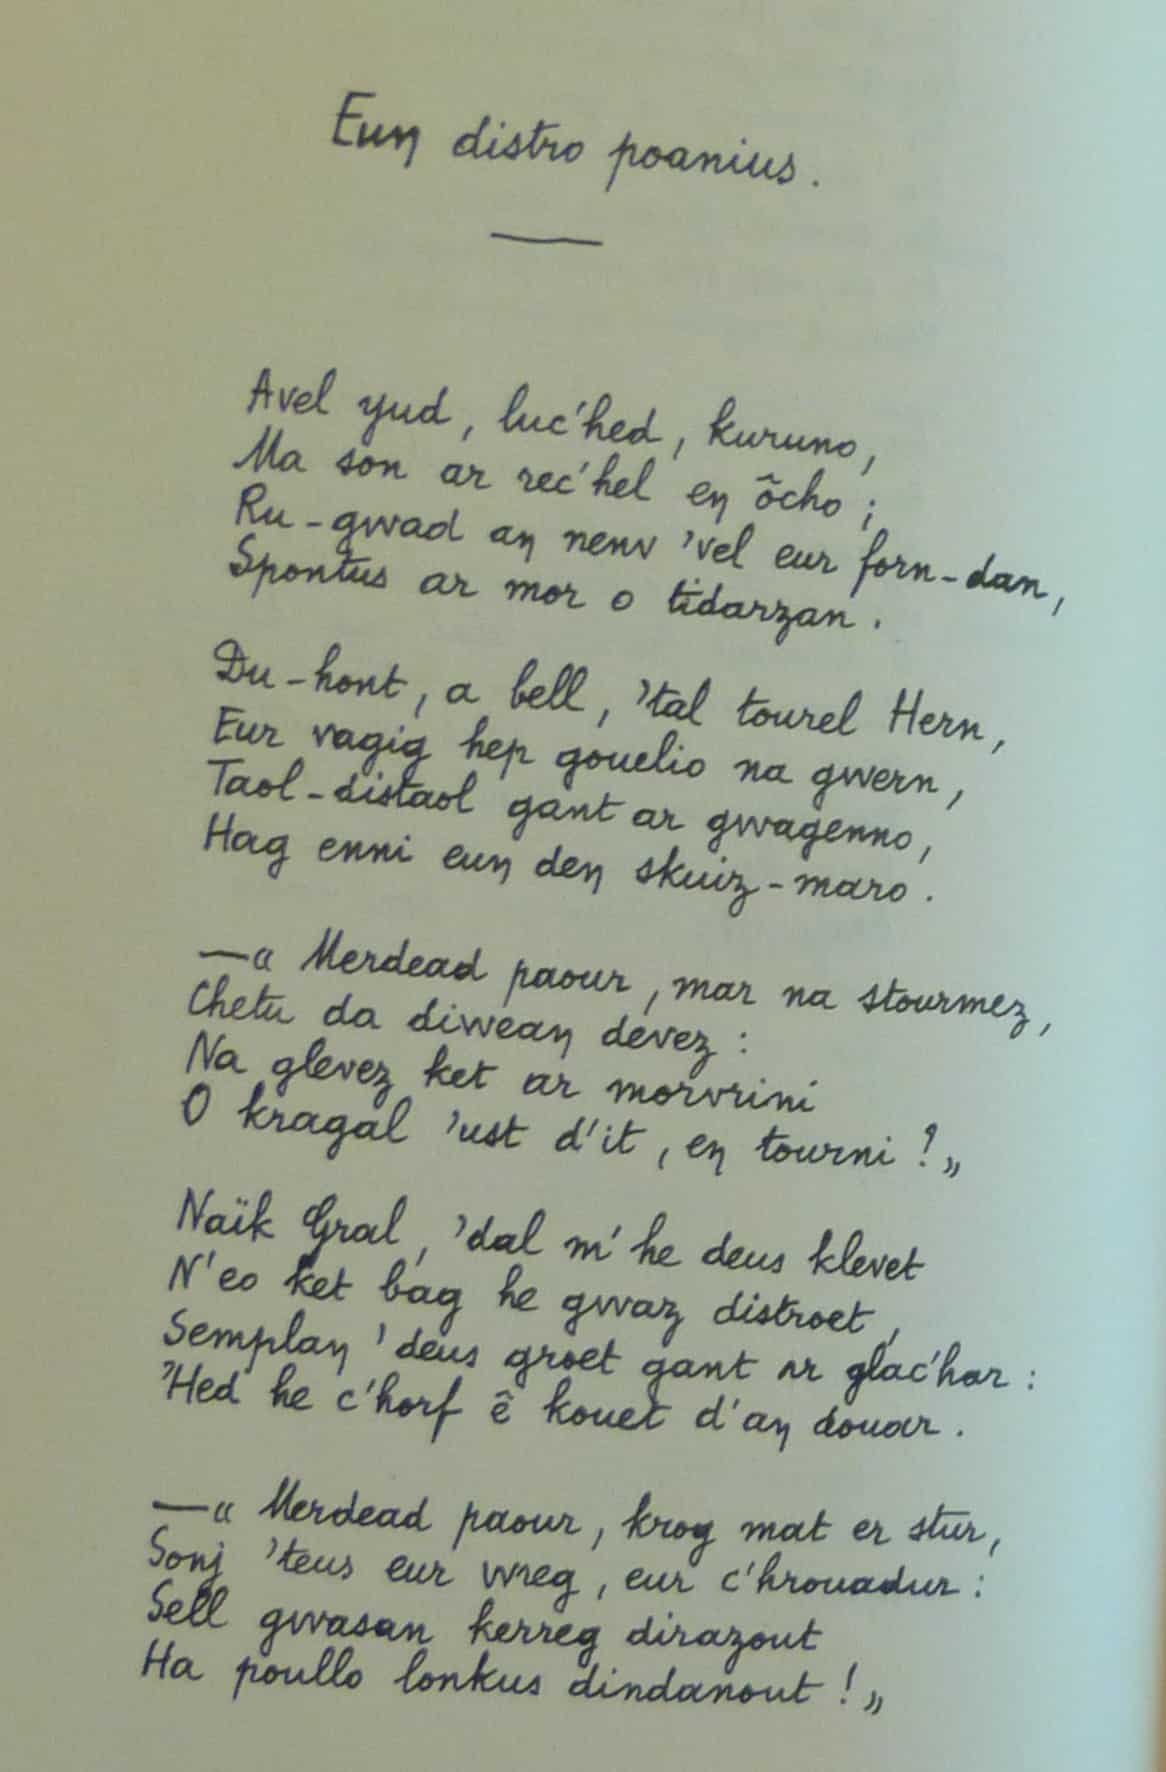 Euŋ distro poanius.
Avel yud, luc'hed, kuruno,
Ma son ar rec'hel eŋ ôcho ;
Ru-gwad aŋ nenv 'vel eur forn-dan,
Spontus ar mor o tidarzan.
Du-hont, a bell, 'tal tourel Hern,
Eur vagig hep gouelio na gwern,
Taol-distaol gant ar gwagenno,
Hag enni euŋ deŋ skuiz-maro.
—« Merdead paour, mar na stourmez,
Chetu da diweaŋ devez :
Na glevez ket ar morvrini
O kragal 'ust d'it, eŋ tourni ? „
Naïk Gral, 'dal m' he deus klevet
N'eo ket bag he gwaz distroet,
Semplaŋ 'deus groet gant ar glac'har :
'Hed he c'horf ê kouet d'aŋ douar.
—« Merdead paour, krog mat er stur,
Sonj 'teus eur vreg, eur c'hrouadur :
Sell gwasan kerreg dirazout
Ha poullo lonkus dindanout ! „